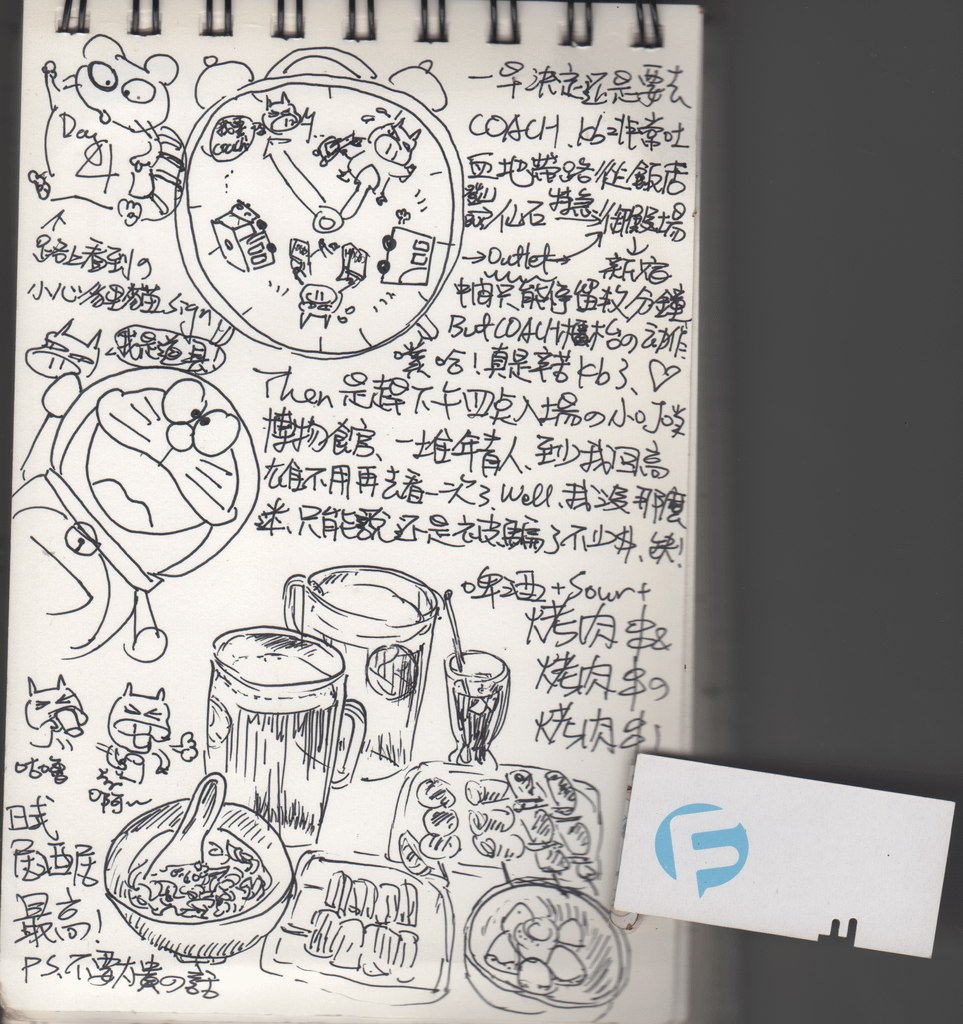 Day
4
我要
去
COACH
路上看到の
小心狸貓 sign
我是道具!
一早決定還是要去
COACH、kb非常吐
血地帶路從飯店
仙石 特急 御殿場
→Outlet→ 新宿
中間只能停留數分鐘
But COACH櫃台の动作
噗哈!真是辛苦kb了、♡
Then是趕下午四点入場の小叮噹
博物館、一堆年青人、到我回高
雄不用再去看一次了、Well、我沒那麼
迷、只能說还是被騙了不少丼、
啤酒+Sour+
烤肉串&
烤肉串の
烤肉串!
咕嚕
啊~
日式
居酒屋
最高!
PS、不要太貴の話